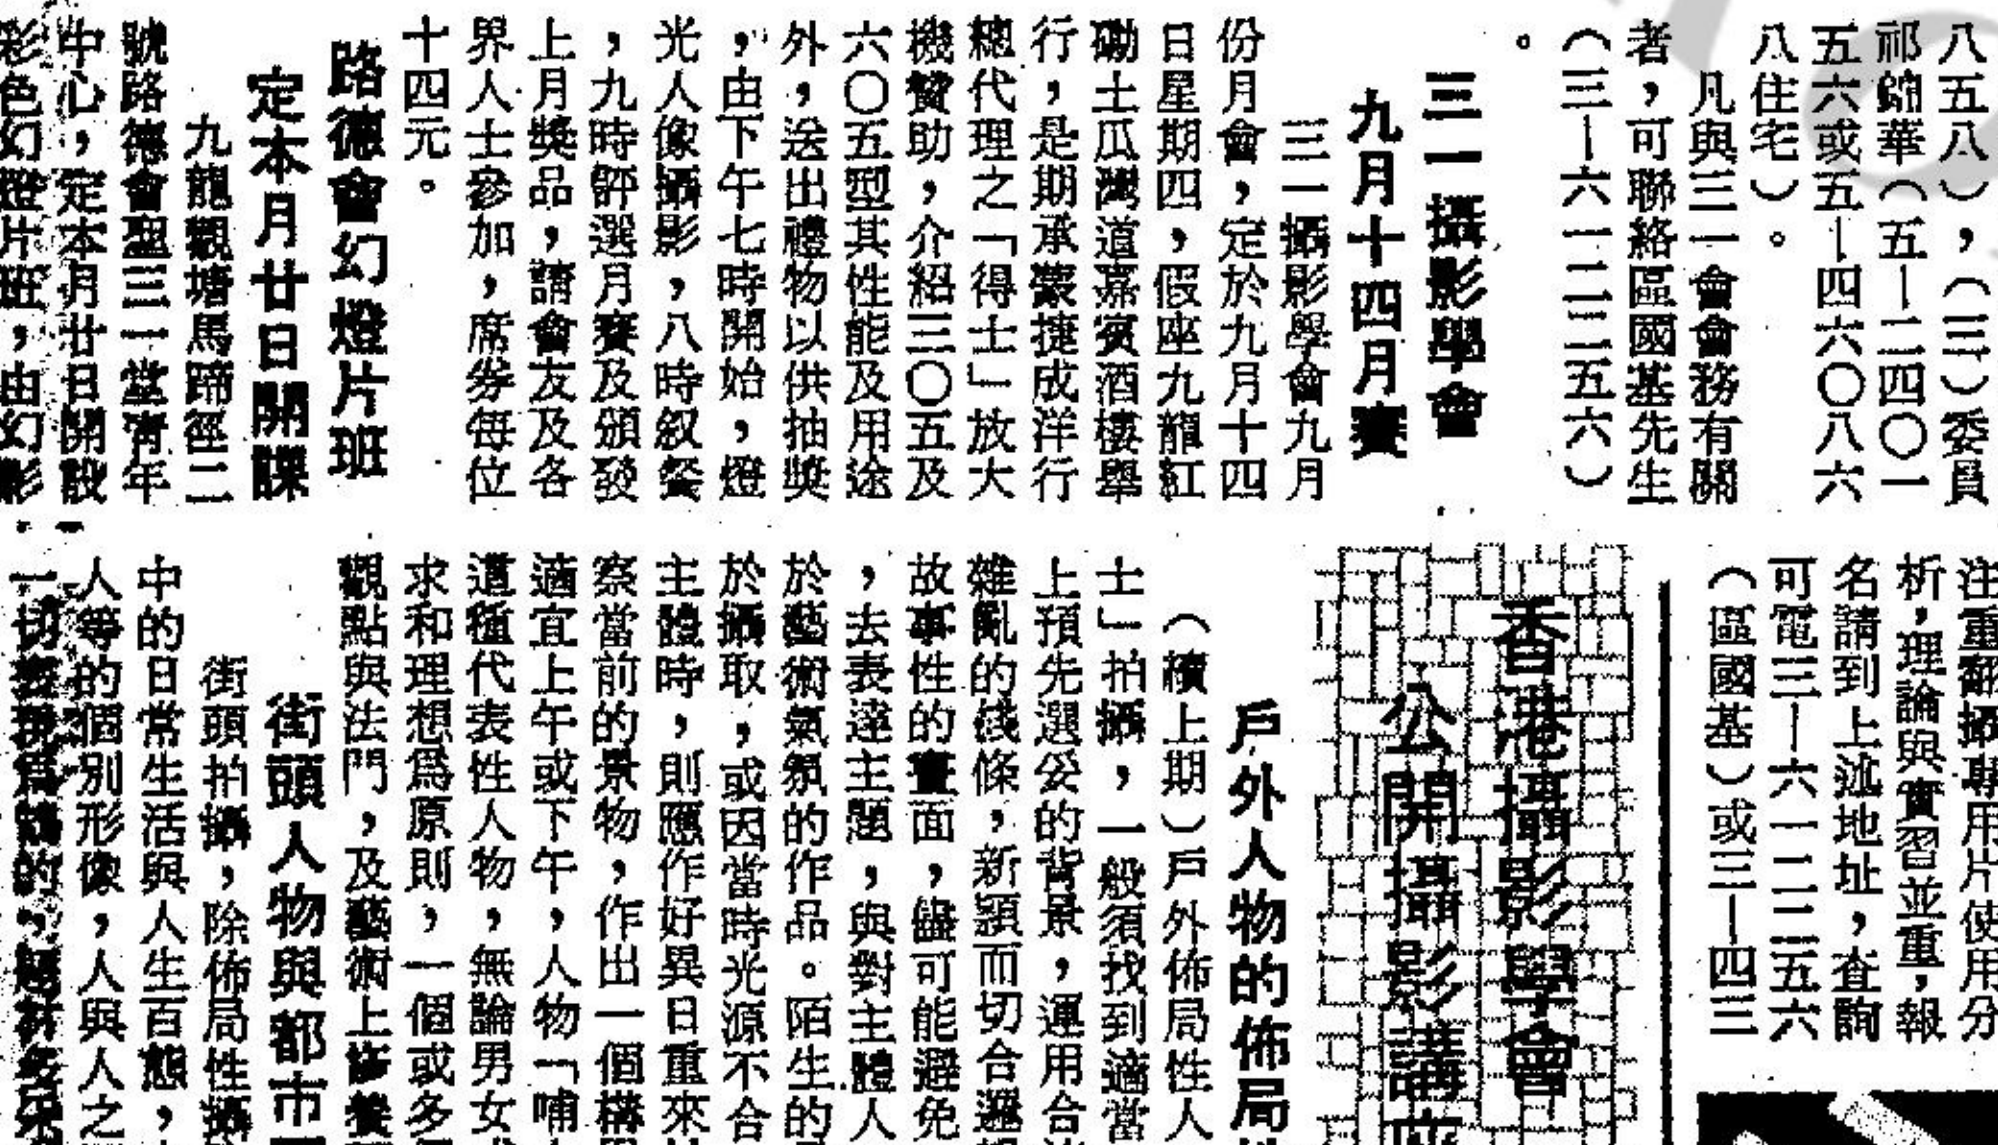 八五八），（三）委員
祁錦華（五—二四〇一
五六或五—四六〇八六
八住宅）。
凡與三一會會務有關
者，可聯絡區國基先生
（三—六一二二五六）
。
三一攝影學會
九月十四月賽
三一攝影學會九月
份月會，定於九月十四
日星期四，假座九龍紅
磡土瓜灣道嘉賓酒樓舉
行，是期承蒙捷成洋行
總代理之「得士」放大
機贊助，介紹三〇五及
六〇五型其性能及用途
外，送出禮物以供抽獎
，由下午七時開始，燈
光人像攝影，八時叙餐
，九時評選月賽及頒發
上月獎品，請會友及各
界人士參加，席券每位
十四元。
路德會幻燈片班
定本月廿日開課
九龍觀塘馬蹄徑二
號路德會聖三一堂青年
中心，定本月廿日開設
彩色幻燈片班，由幻影
注重翻攝專用片使用分
析，理論與實習並重，報
名請到上述地址，查詢
可電三—六一二二五六
（區國基）或三—四三
香港攝影學會
公開攝影講座
戶外人物的佈局
（續上期）戶外佈局性人
士」拍攝，一般須找到適當
上預先選妥的背景，運用合
雜亂的綫條，新頴而切合
故事性的畫面，儘可能避免
，去表達主題，與對主體人
於藝術氣氛的作品。陌生的
於攝取，或因當時光源不合
主體時，則應作好異日重來
察當前的景物，作出一個構
適宜上午或下午，人物「哺
這種代表性人物，無論男女
求和理想為原則，一個或多
觀點與法門，及藝術上修養
街頭人物與都市
街頭拍攝，除佈局性攝
中的日常生活與人生百態，
人等的個別形像，人與人之
一切